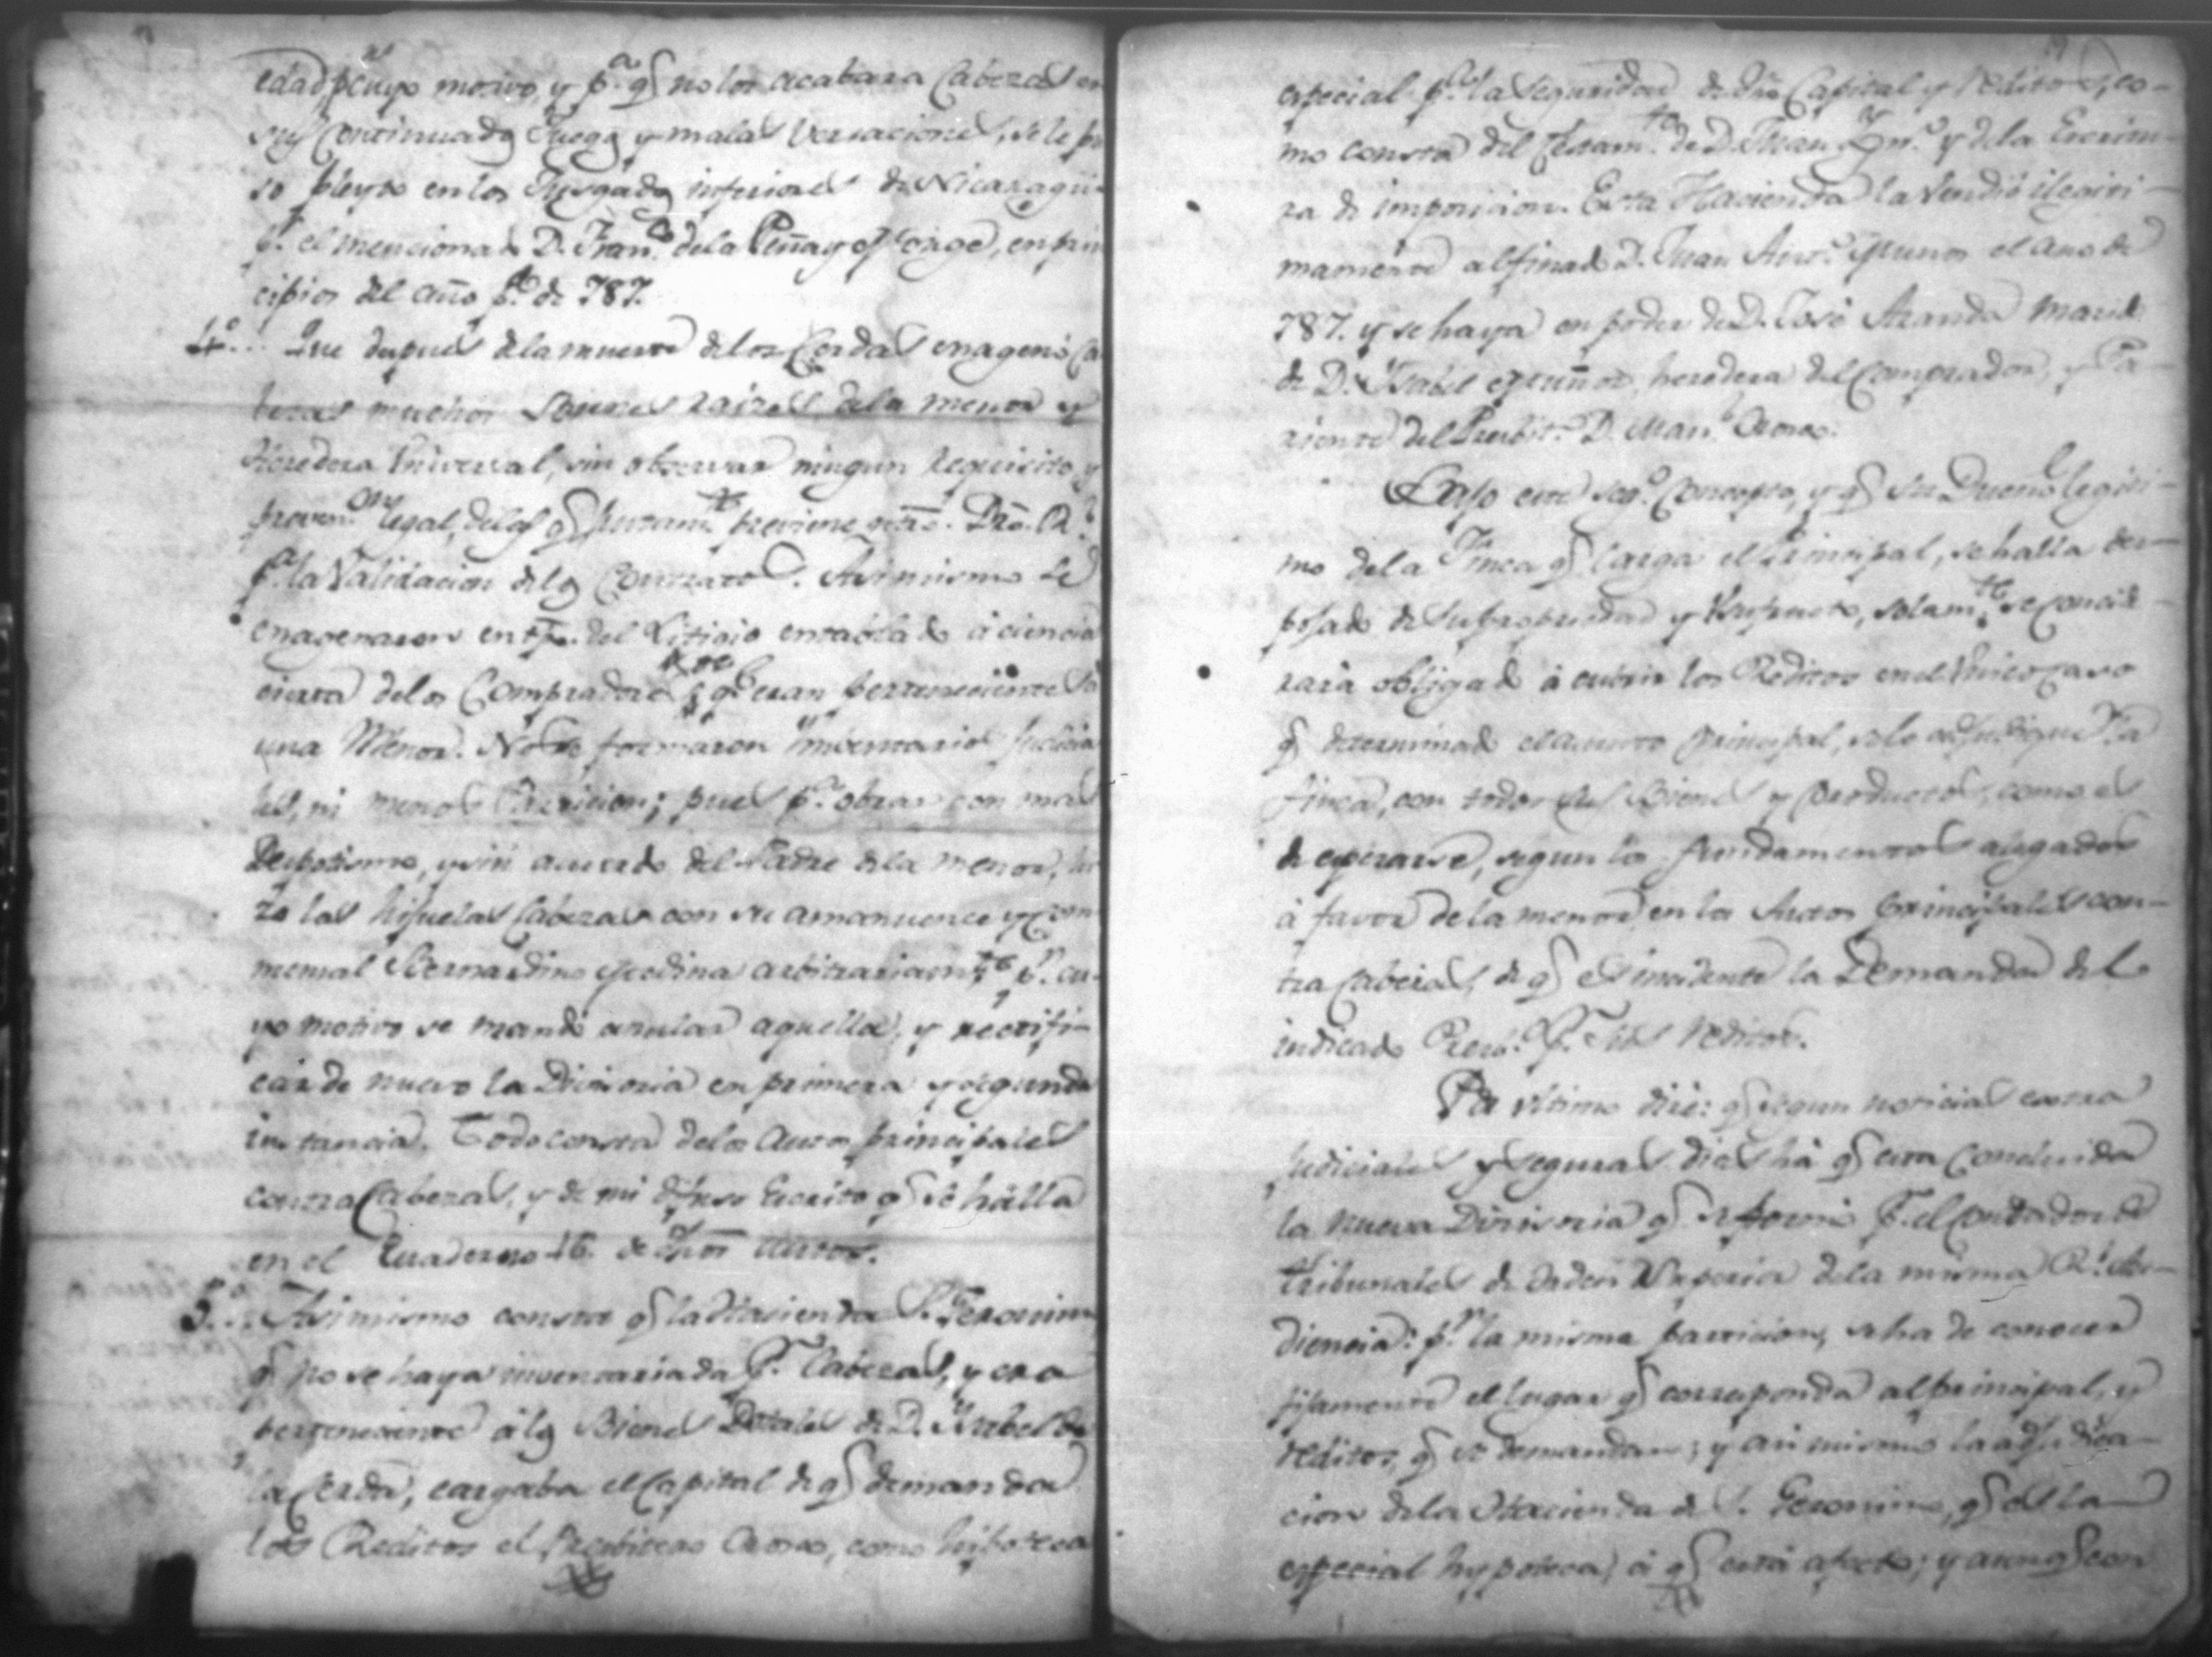 edad, pr cuyo motivo, y pa. q no los acabara Cabezas en
sus continuados Juegos y malas versaciones, se le pu
so pleyto en los Jusgados inferiores de Nicaragua
pr. el mencionado D. Franco. de la Peña y Monge, en prin
cipios del año pdo. de 787.
4o... Que despues de la muerte de los Cerdas enagenó Ca
bezas muchos bienes raizes de la menor y
heredera Universal, sin observar ningun requisito, y
prevenon. legal, de las q justamte. previene ntro. Dro. Rl.
pa. la Validacion de los Contratos. Asi mismo se
enagenaron en tpo. del Litigio entablado á ciencia
cierta de los Compradores, q eran pertenecientes á
una Menor. No se formaron Imbentarios Judicia
les, ni menos Particion; pues pa. obrar con mas
Despotismo, y sin acuerdo del Padre de la menor, hi
zo las hijuelas Cabezas con su amanuence y com
mensal Bernardino Medina arbitrariamte. pr. cu-
yo motivo se mandó anular aquella, y rectifi-
car de nuevo la Divisoria en primera y segunda
instancia. Todo consta de los Autos principales
contra Cabezas, y de mi difuso Escrito q se halla
en el Quaderno 16. de dhos Autos.
5o... Asi mismo consta q la Hasienda Sn. Geronimo,
q no se haya inventariada pr. Cabezas, y era
perteneciente á los Bienes Dotales de Da. Isabel de
la Cerda, cargaba el Capital de q demanda
los Reditos el Presbitero Ocon, como hipoteca
especial pa. la seguridad de dho Capital y reditos, co-
mo consta del Testamto. de D. Juan y de la Escritu-
ra de imposicion. Esta Hacienda la vendió ilegiti-
mamente al finado D. Juan Anto. Muños el año de
787. y se haya en poder de D. José Aranda marido
de Da. Isabel Muñoz, heredera del Comprador, y Pa-
riente del Presbito. D. Manl.
Bajo este sego. Concepto, y q su Dueño legiti-
mo de la Finca q carga el Principal, se halla des-
pojado de su propriedad y Usufructo, solamte. se conside-
rará obligado á cubrir los Reditos en el unico caso
q determinado el asunto principal, se le adjudique la
finca, con todos sus Bienes y Productos, como es
de esperarse, segun los fundamentos alegados
á favor de la menor en los Autos principales con-
tra Cabezas, de q es incidente la Demanda del
indicado Presb. pr. sus reditos.
Por ultimo dire: q segun noticias extra
judiciales y seguras, dias há q esta Concluida
la nueva Divisoria q se formó pr. el Contador de
tribunales de orden Superior de la misma Rl. Au-
diencia: pr. la misma particion, se ha de conocer
fijamente el lugar q corresponda al principal, y
reditos, q se demandan; y asi mismo la adjudica-
cion de la Hacienda de S. Geronimo, q es la
especial hypoteca, á q está afecto; y aunq con